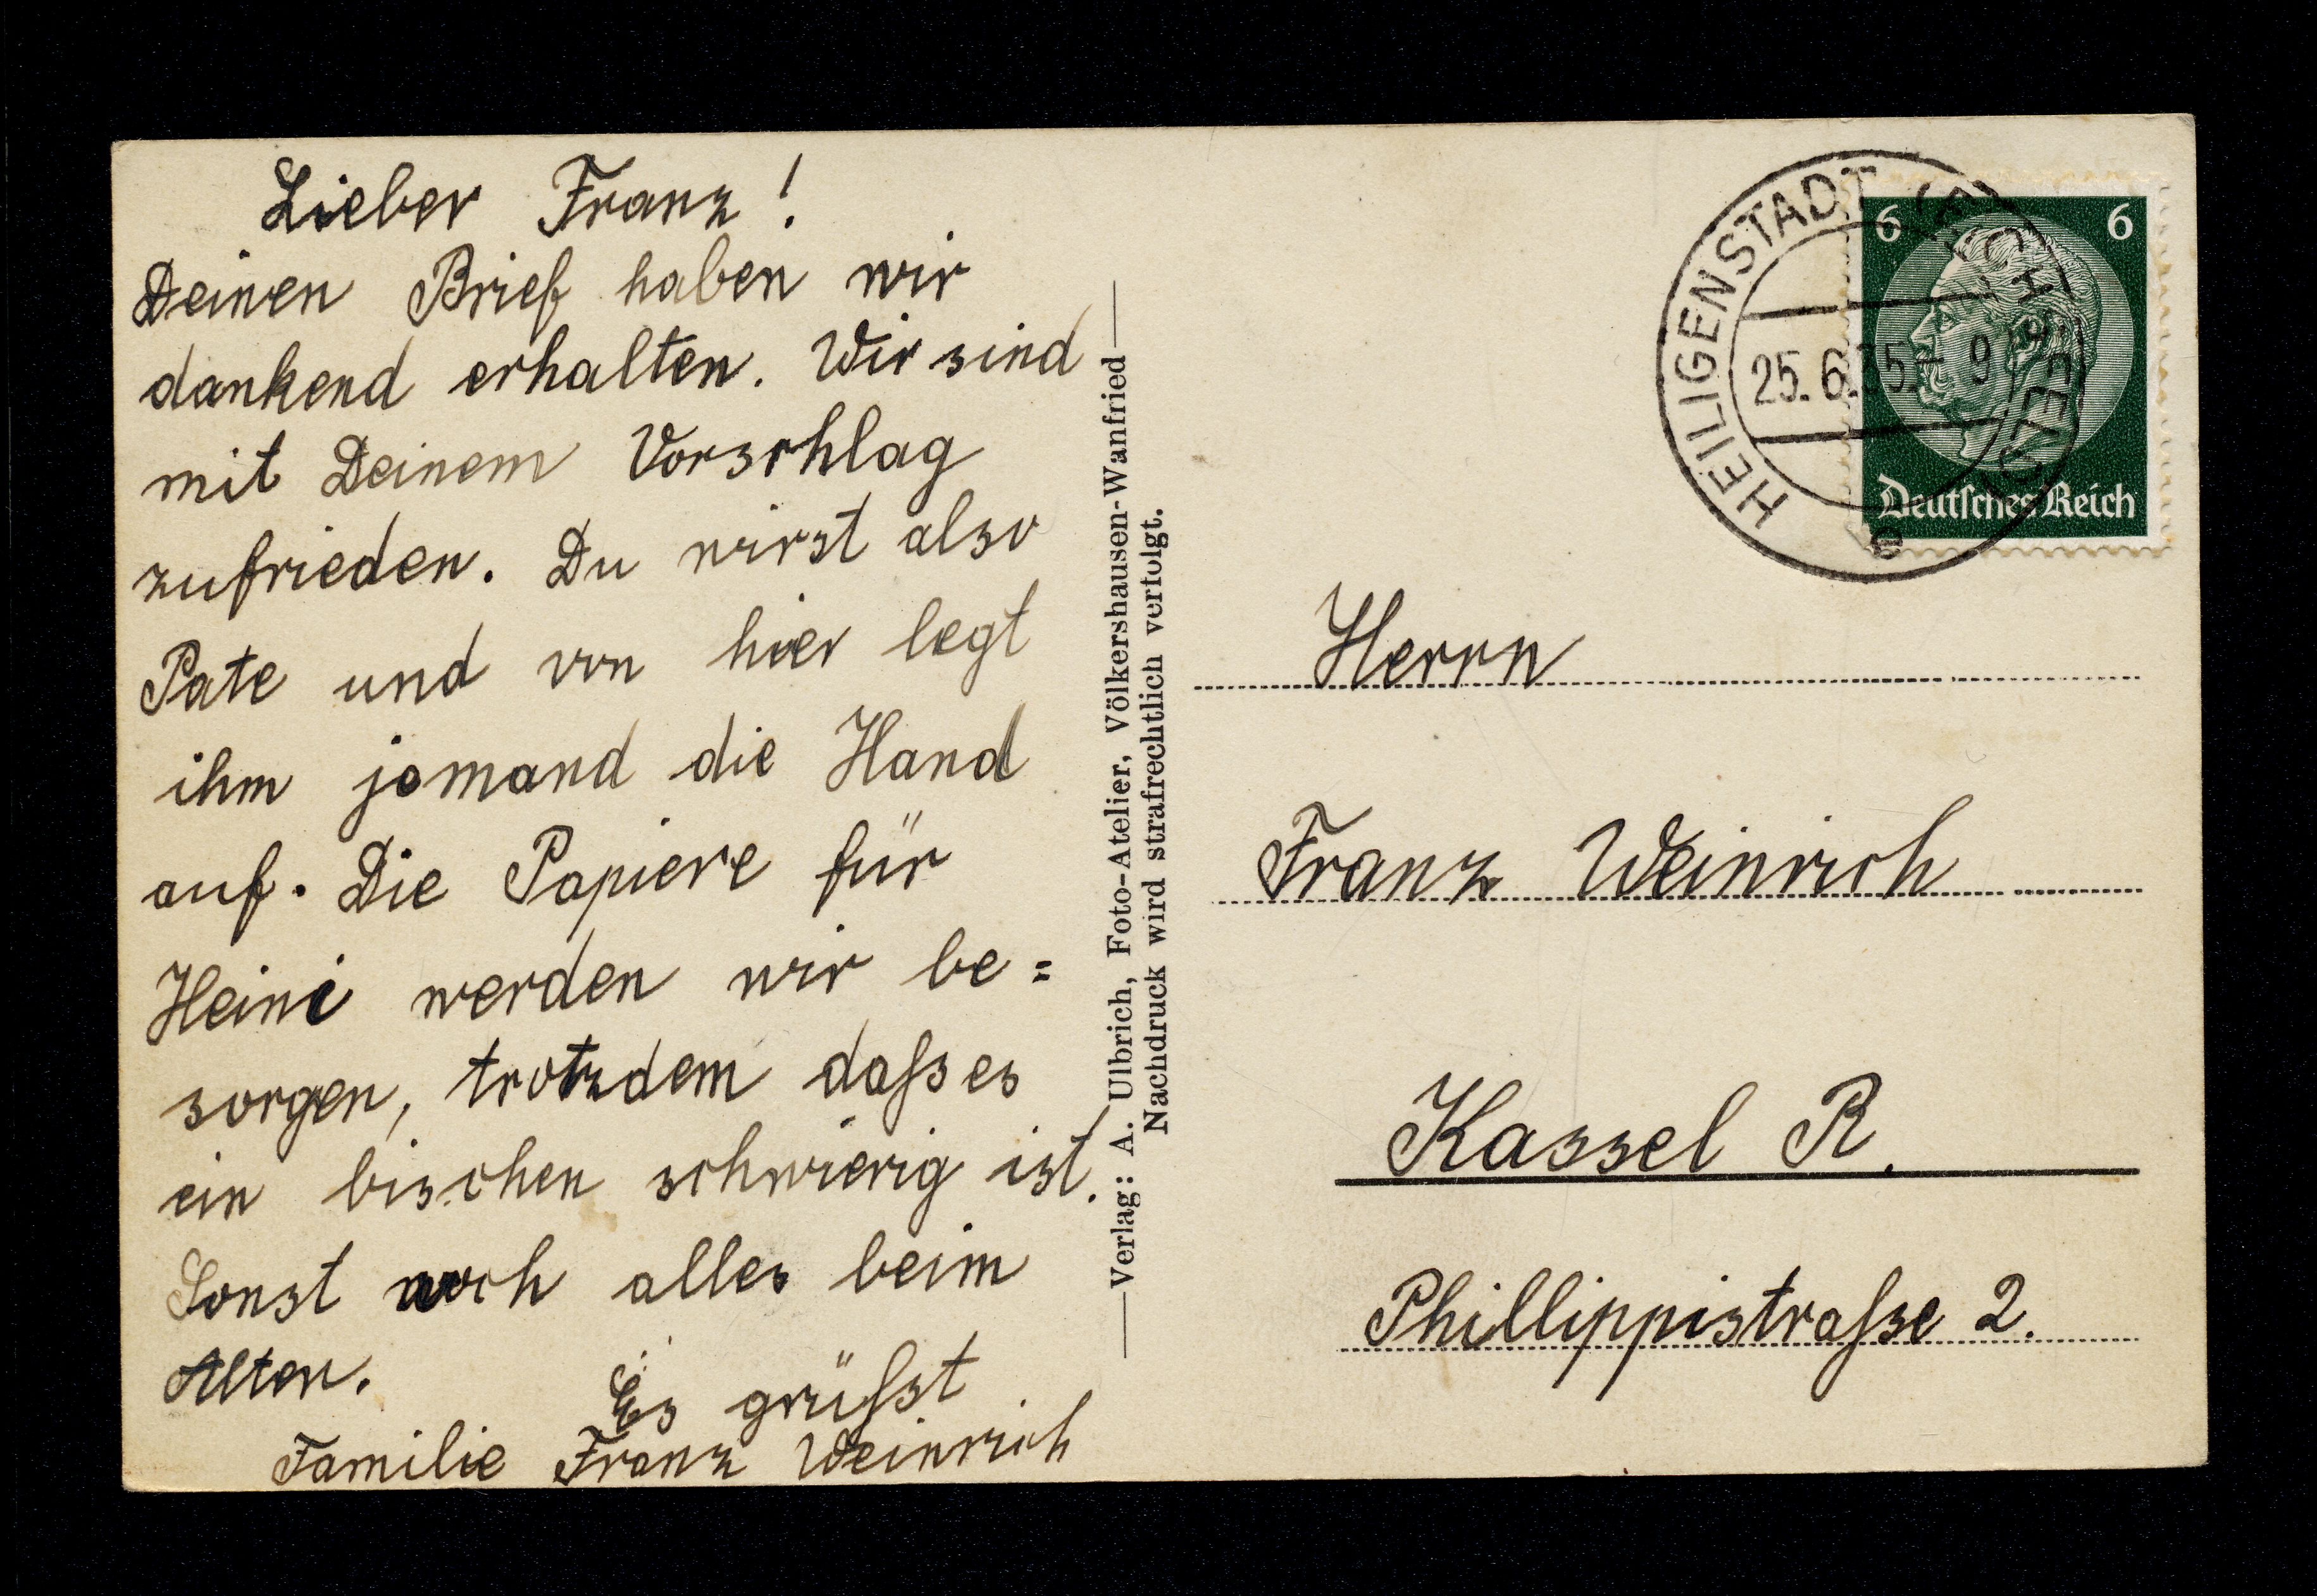 Lieber Franz!
Deinen Brief haben wir
dankend erhalten. Wir sind
mit Deinem Vorschlag
zufrieden. Du wirst also
Pate und von hier legt
ihm jemand die Hand
auf. Die Papiere für
Heini werden wir be=
sorgen, trotzdem dass es
ein bischen schwierig ist.
Sonst noch alles beim
Alten.
Es grüsst
Familie Franz Weinrich
Verlag: A. Ulbrich, Foto-Atelier, Völkershausen-Wanfried
Nachdruck wird strafrechtlich verfolgt.
HEILIGENSTADT (EICHSFELD)
25.6.35.- 9
e
6 6
Deutsches Reich
Herrn
Franz Weinrich
Kassel R.
Phillippistrasse 2.